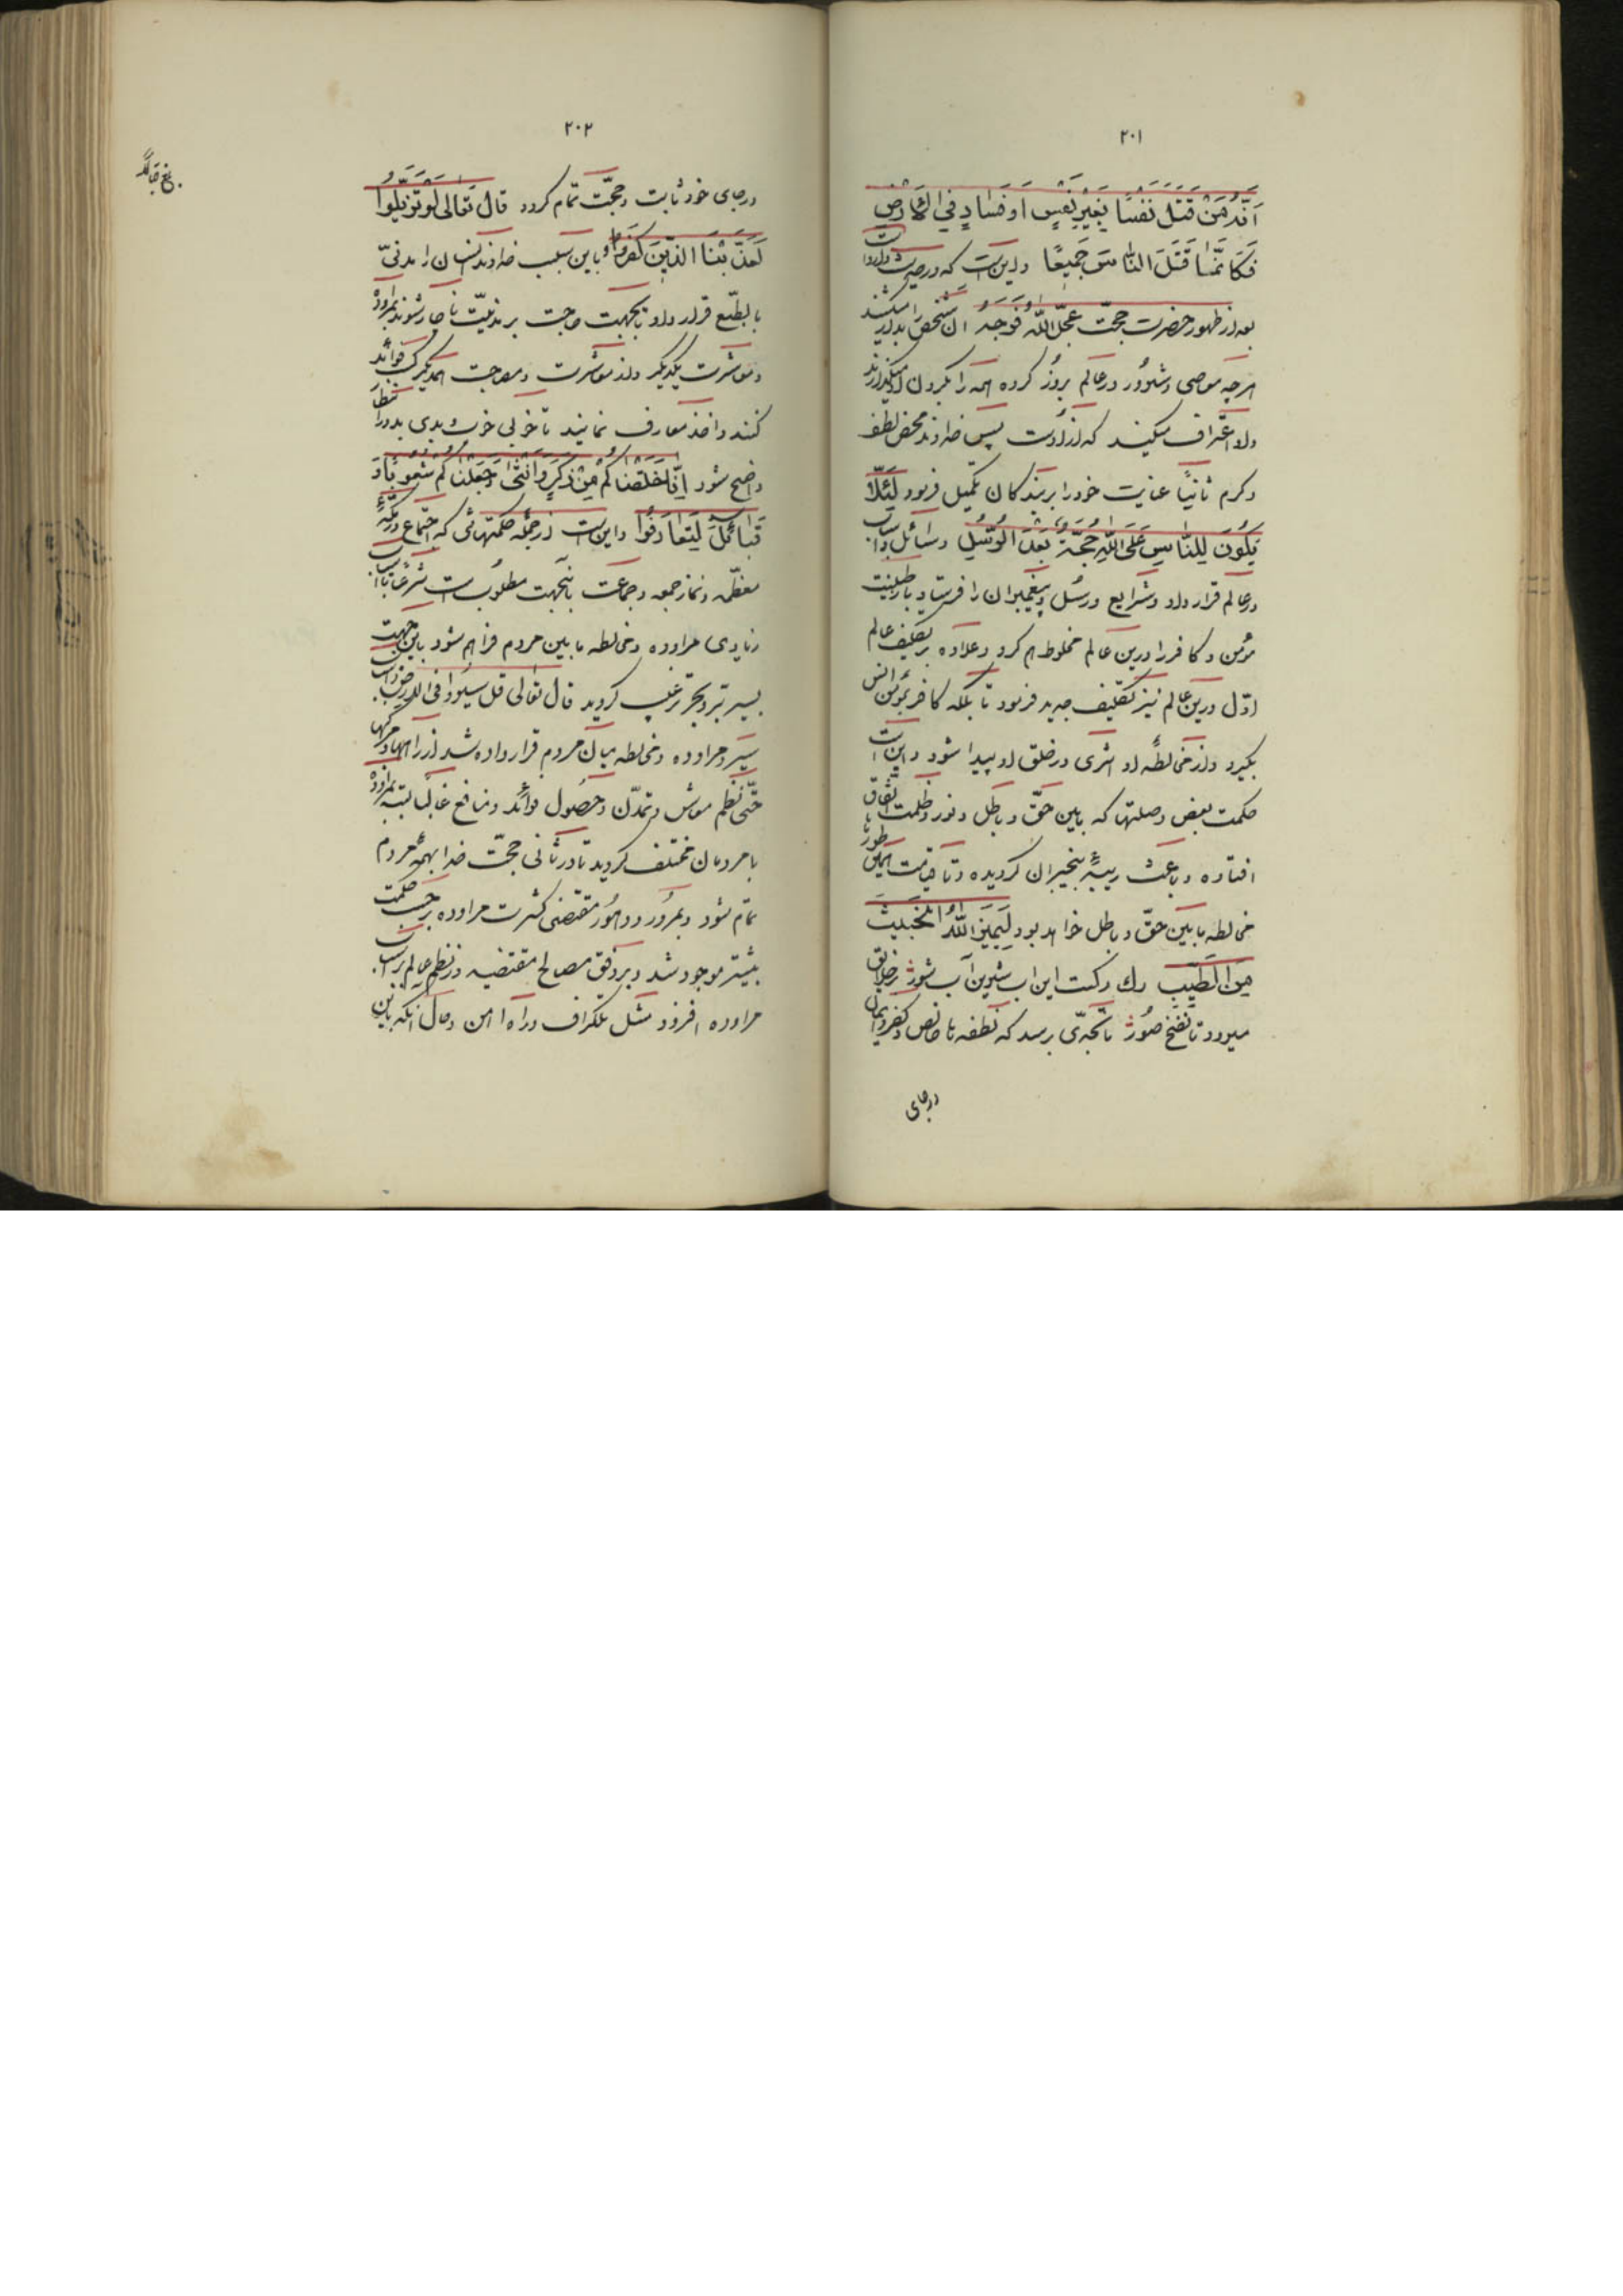 ٢٠١
اَنَّهُ مَنْ قَتَلَ نَفْسًا بِغَيْرِ نَفْسٍ اَوْ فَسَادٍ فِي الْاَرْضِ
فَكَاَنَّمَا قَتَلَ النَّاسَ جَمِيعًا و اینست که در حدیث وارد است
بعد از ظهور حضرت حجّت عَجَّلَ اللّٰهُ فَرَجَهُ آن شخص را میکشند
هرچه معاصی و شرور در عالم بروز کرده همه را بگردن او میگذارند
و او اعتراف میکند که از اوست پس خداوند محض لطف
و کرم ثانیًا عنایت خود را بر بندگان تکمیل فرمود لِئَلّا
يَكُونَ لِلنَّاسِ عَلَى اللّٰهِ حُجَّةٌ بَعْدَ الرُّسُلِ وسائل و اسباب
در عالم قرار داد و شرایع و رسل و پیغمبران را فرستاد با طینت
مؤمن و کافر را درین عالم مخلوط هم کرد و علاوه بر تکلیف عالم
اوّل درین عالم نیز تکلیف جدید فرمود تا بلکه کافر بمؤمن انس
بگیرد و از مخالطهٔ او اثری در خلق او پیدا شود و اینست
حکمت بعض وصلتها که بابین حقّ و باطل و نور و ظلمت اتّفاق
افتاده و باعث ریبهٔ بیخبران گردیده و تا قیامت همین طورها
مخالطه مابین حقّ و باطل خواهد بود لِيَمِيزَ اللّٰهُ الْخَبِيثَ
مِنَ الطَّيِّبِ رك رگست این آب شیرین آب شور در خلایق
میرود تا نفخ صور تا بحدّی برسد که نطفه ناخالص و کفر و ایمان
در جای
٢٠٢
در جای خود ثابت و حجّت تمام گردد قال تعالی لَوْ تَزَيَّلُوا
لَعَذَّبْنَا الَّذِينَ كَفَرُوا و باین سبب خداوند انسان را مدنیّ
بالطّبع قرار داد تا بجهت حاجت بر مدنیّت ناچار شوند بمراوده
و معاشرت یکدیگر و از معاشرت و مصاحبت همدیگر کسب فوائد
کنند و اخذ معارف نمایند تا خوبی خوب و بدی بد در انظار
واضح شود اِنَّا خَلَقْنَاكُمْ مِنْ ذَكَرٍ وَاُنْثٰى وَجَعَلْنَاكُمْ شُعُوبًا وَ
قَبَائِلَ لِتَعَارَفُوا و اینست از جمله حکمتهائی که اجتماع در مکّهٔ
معظّمه و نماز جمعه و جماعت باینجهت مطلوبست شرعًا تا اسباب
زیادی مراوده و مخالطه مابین مردم فراهم شود باین جهت
بسیر برّ و بحر ترغیب گردید قال تعالی قل سیروا فی الارض و اسباب
سیر و مراوده و مخالطه میان مردم قرار داده شد از راهها و مرکبها
حتّی نظم معاش و تمدّن و حصول فوائد و منافع غالبًا بسته بمراوده
با مردمان مختلف گردید تا در ثانی حجّت خدا بهمهٔ مردم
تمام شود و بمرور دهور مقتضی کثرت مراوده بر حسب حکمت
بیشتر موجود شد و بر وفق مصالح مقتضیه در نظم عالم بر اسباب
مراوده افزود مثل تلگراف و راه امن و حال آنکه باین